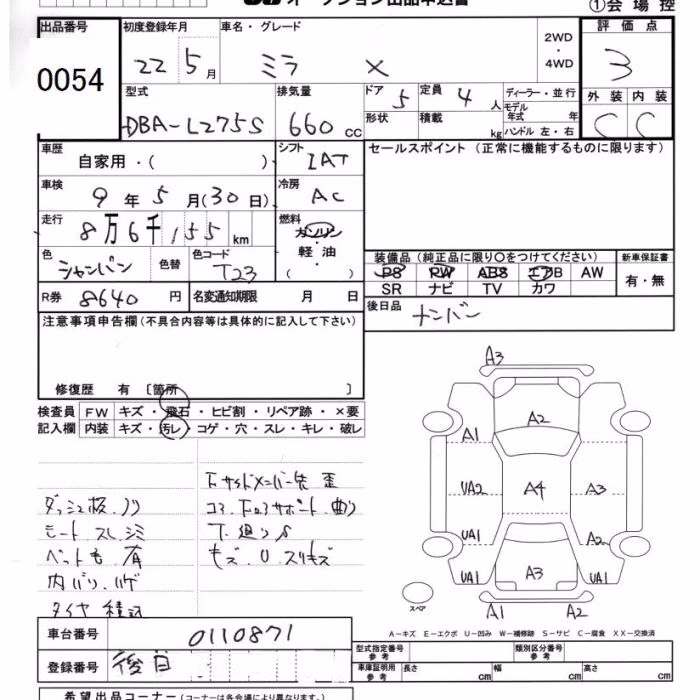 オークション出品申込書 ①会場控
出品番号 初度登録年月 車名・グレード 2WD・4WD 評価点
0054 22 5月 ミラ X 3
型式 排気量 ドア 定員 ディーラー・並行 外装 内装
DBA-L275S 660cc 5 4人 モデル年式 年 C C
形状 積載 kg ハンドル 左・右
車歴 自家用・( ) シフト IAT セールスポイント(正常に機能するものに限ります)
車検 9年5月(30日) 冷房 AC
走行 8万6千155km 燃料 ガソリン 軽・油 ( )
色 シャンパン 色替 色コード T23
装備品(純正品に限り〇をつけてください) 新車保証書
PS PW ABS エアB AW 有・無
SR ナビ TV カワ
R券 8640円 名変通知期限 月 日 後日品 ナンバー
注意事項申告欄(不具合内容等は具体的に記入して下さい)
修復歴 有 〔箇所 〕
検査員 FW キズ・飛石・ヒビ割・リペア跡・×要
記入欄 内装 キズ・汚レ・コゲ・穴・スレ・キレ・破レ
ダッシュ板、ノリ
シート スレ、シミ
ペット毛 有
内バリ、ハゲ
タイヤ 積込
下サイドメンバー先 歪
コア下ロアサポート 曲り
下廻りS
キズ、U、スリキズ
A3
A2
A1
UA2 A4 A3
UA1 A2
UA1 A3 UA1
スペア
A1 A2
A-キズ E-エクボ U-凹み W-補修跡 S-サビ C-腐食 XX-交換済
車台番号 0110871
型式指定番号 参考 類別区分番号 参考
登録番号 後日
車庫証明用 参考 長さ cm 幅 cm 高さ cm
希望出品コーナー(コーナーは各会場により異なります。)